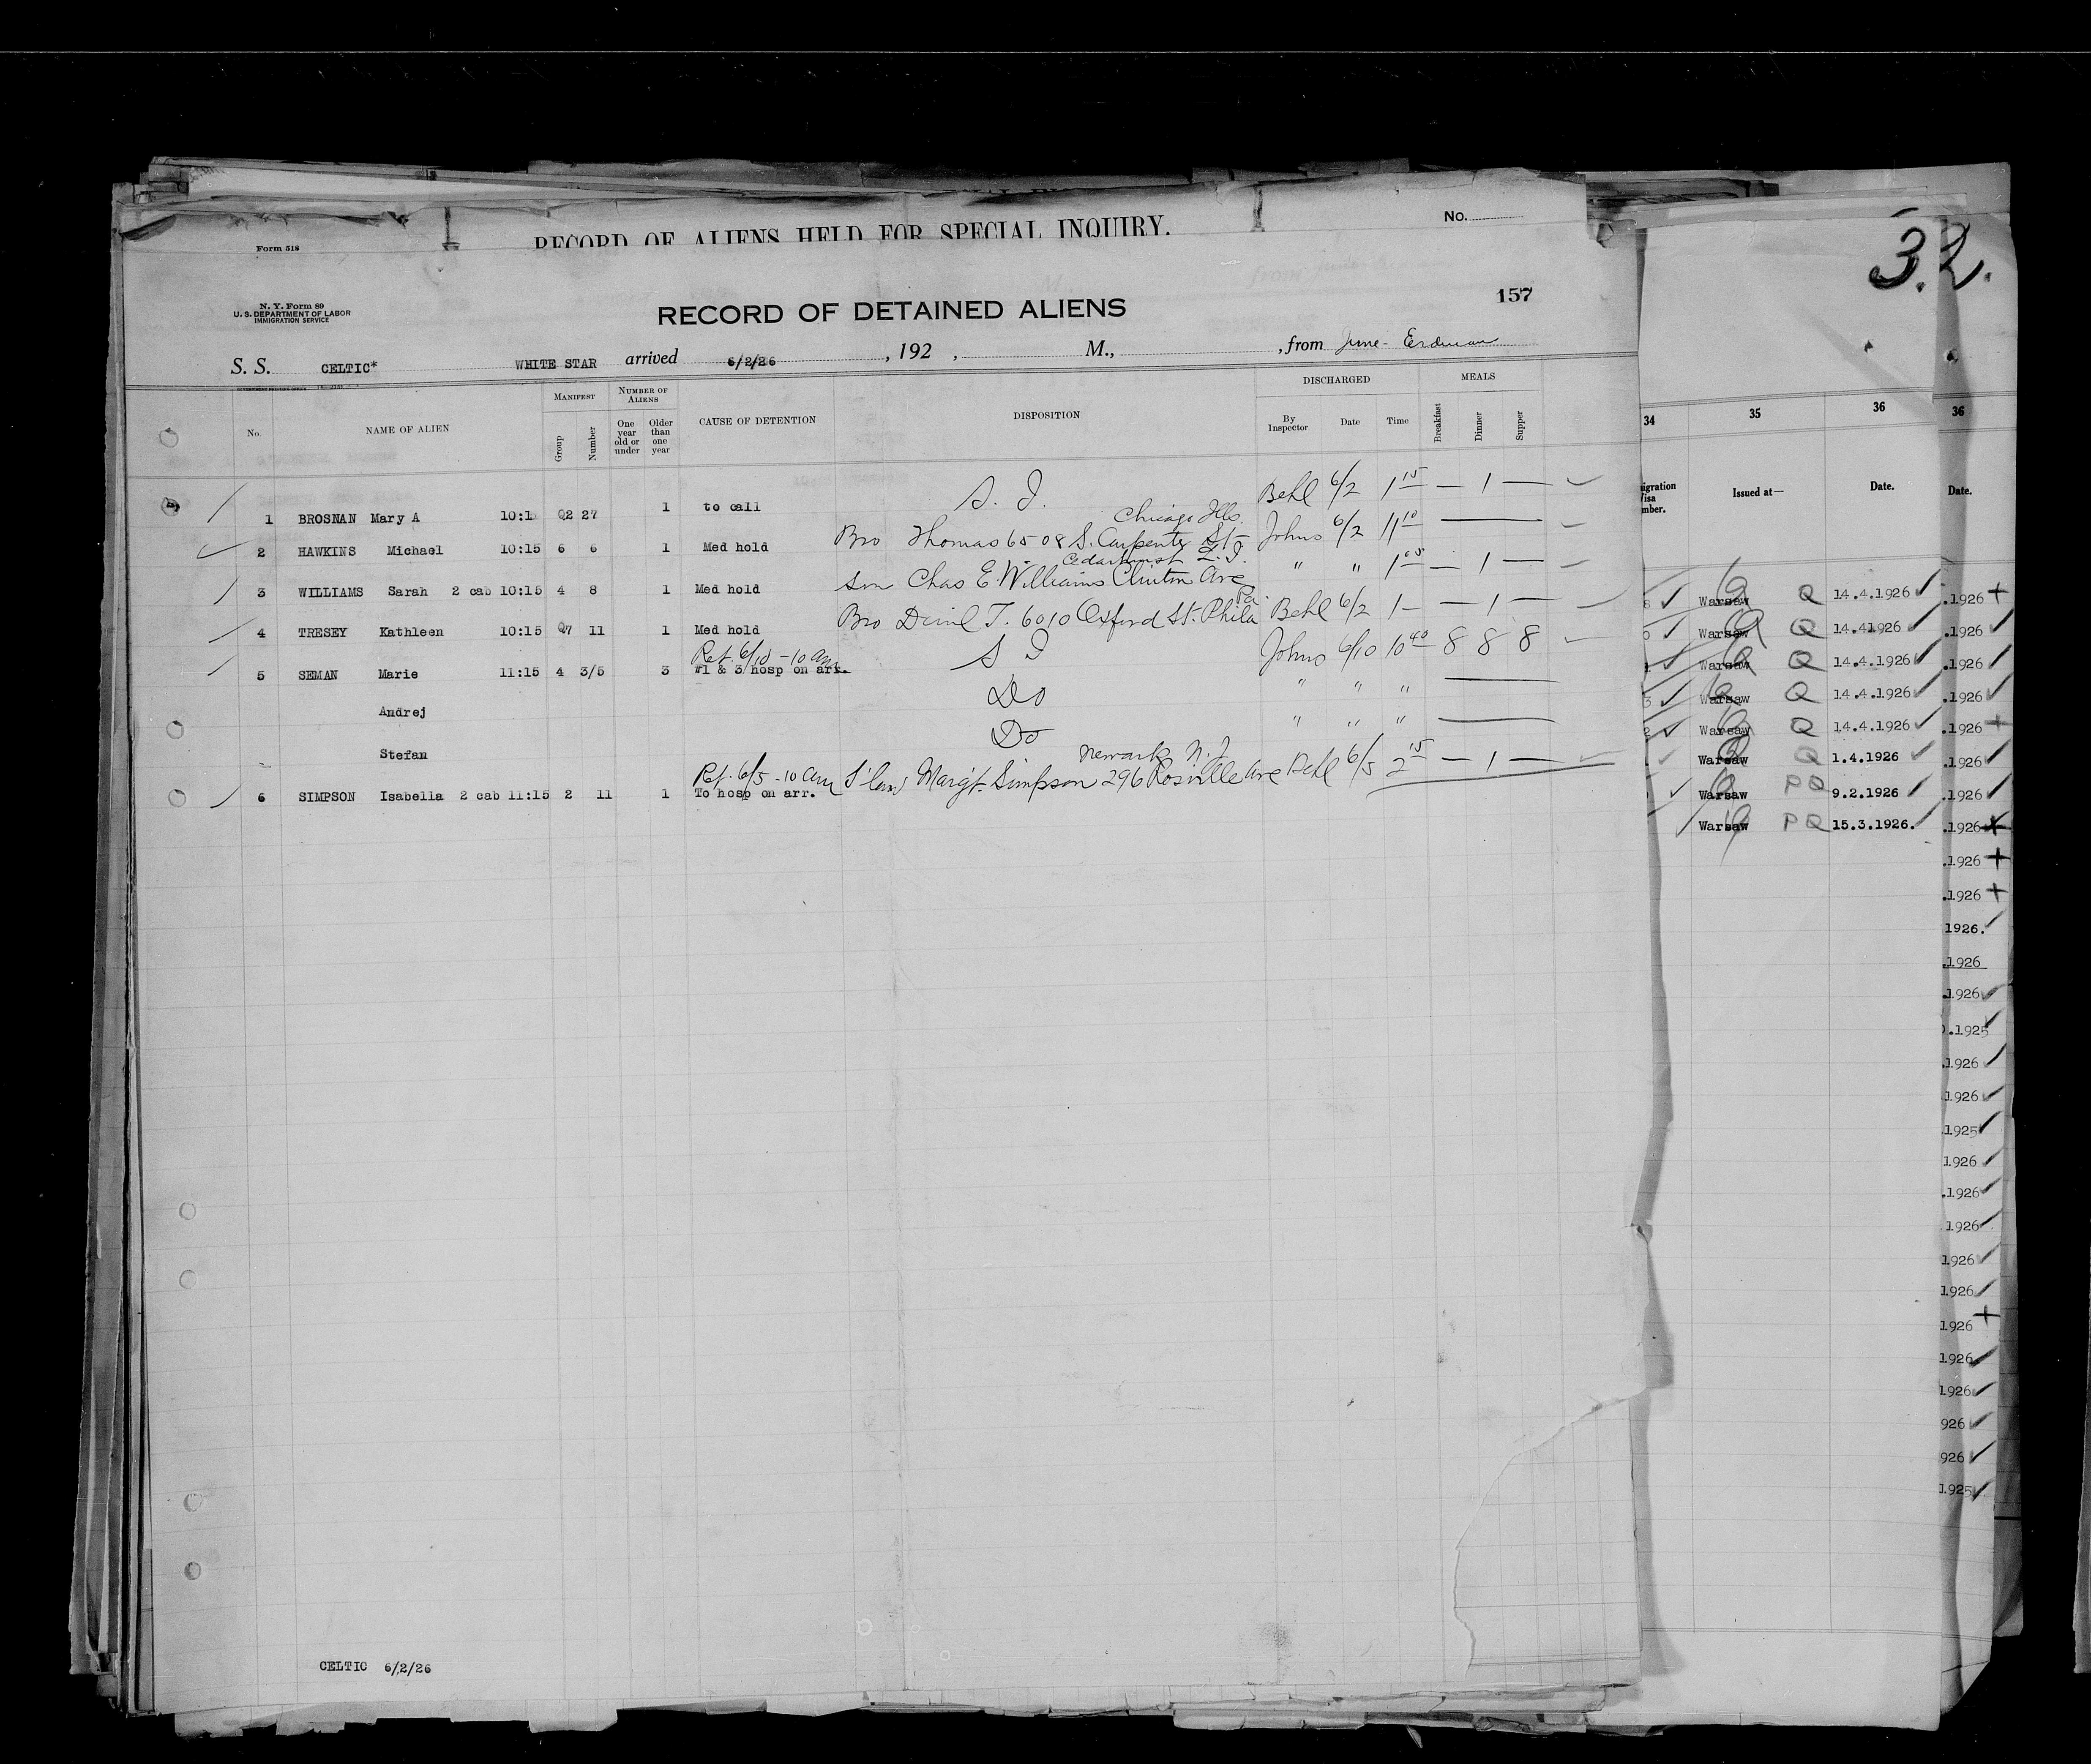 Form 518
RECORD OF ALIENS HELD FOR SPECIAL INQUIRY.
No.
3.2.
N. Y. Form 89
U. S. DEPARTMENT OF LABOR
IMMIGRATION SERVICE
RECORD OF DETAINED ALIENS
157
S. S. CELTIC* WHITE STAR arrived 6/2/26, 192 , M., , from June - Erdman
No.
NAME OF ALIEN
MANIFEST
Group
Number
NUMBER OF ALIENS
One year old or under
Older than one year
CAUSE OF DETENTION
DISPOSITION
DISCHARGED
By Inspector
Date
Time
MEALS
Breakfast
Dinner
Supper
1 BROSNAN Mary A 10:1 Q2 27 1 to call S. I. Behl 6/2 1 15 — 1 —
Chicago Ills.
2 HAWKINS Michael 10:15 6 6 1 Med hold Bro Thomas 6508 S. Carpenter St- Johns 6/2 11 10 —
Cedarhurst L. I.
3 WILLIAMS Sarah 2 cab 10:15 4 8 1 Med hold Son Chas E. Williams Clinton Ave " " 1 05 — 1 —
Pa.
4 TRESEY Kathleen 10:15 Q7 11 1 Med hold Bro 6010 Oxford St. Phila Behl 6/2 1- — 1 —
Ret. 6/10 - 10 am
5 SEMAN Marie 11:15 4 3/5 3 #1 & 3 hosp on arr. S I Johns 6/10 10 40 8 8 8
Andrej Do " " " —
Stefan Do " " " —
Newark N. J.
Ret. 6/5 - 10 am
6 SIMPSON Isabella 2 cab 11:15 2 11 1 To hosp on arr. S'law Margt. Simpson 296 Rosville Ave Behl 6/5 2 15 — 1 —
CELTIC 6/2/26
34
35
36
36
igration
isa
mber.
Issued at—
Date.
Date.
8 Warsaw Q 14.4.1926 .1926
Warsaw Q 14.41926 .1926
Warsaw Q 14.4.1926 .1926
3 Warsaw Q 14.4.1926 .1926
2 Warsaw Q 14.4.1926 .1926
Warsaw Q 1.4.1926 .1926
Warsaw PQ 9.2.1926 .1926
Warsaw PQ 15.3.1926. .1926
.1926
.1926
1926.
.1926
.1926
.1925
.1926
.1926
.1925
1926
.1926
.1926
.1926
.1926
1926
.1926
.1926
926
926
1925